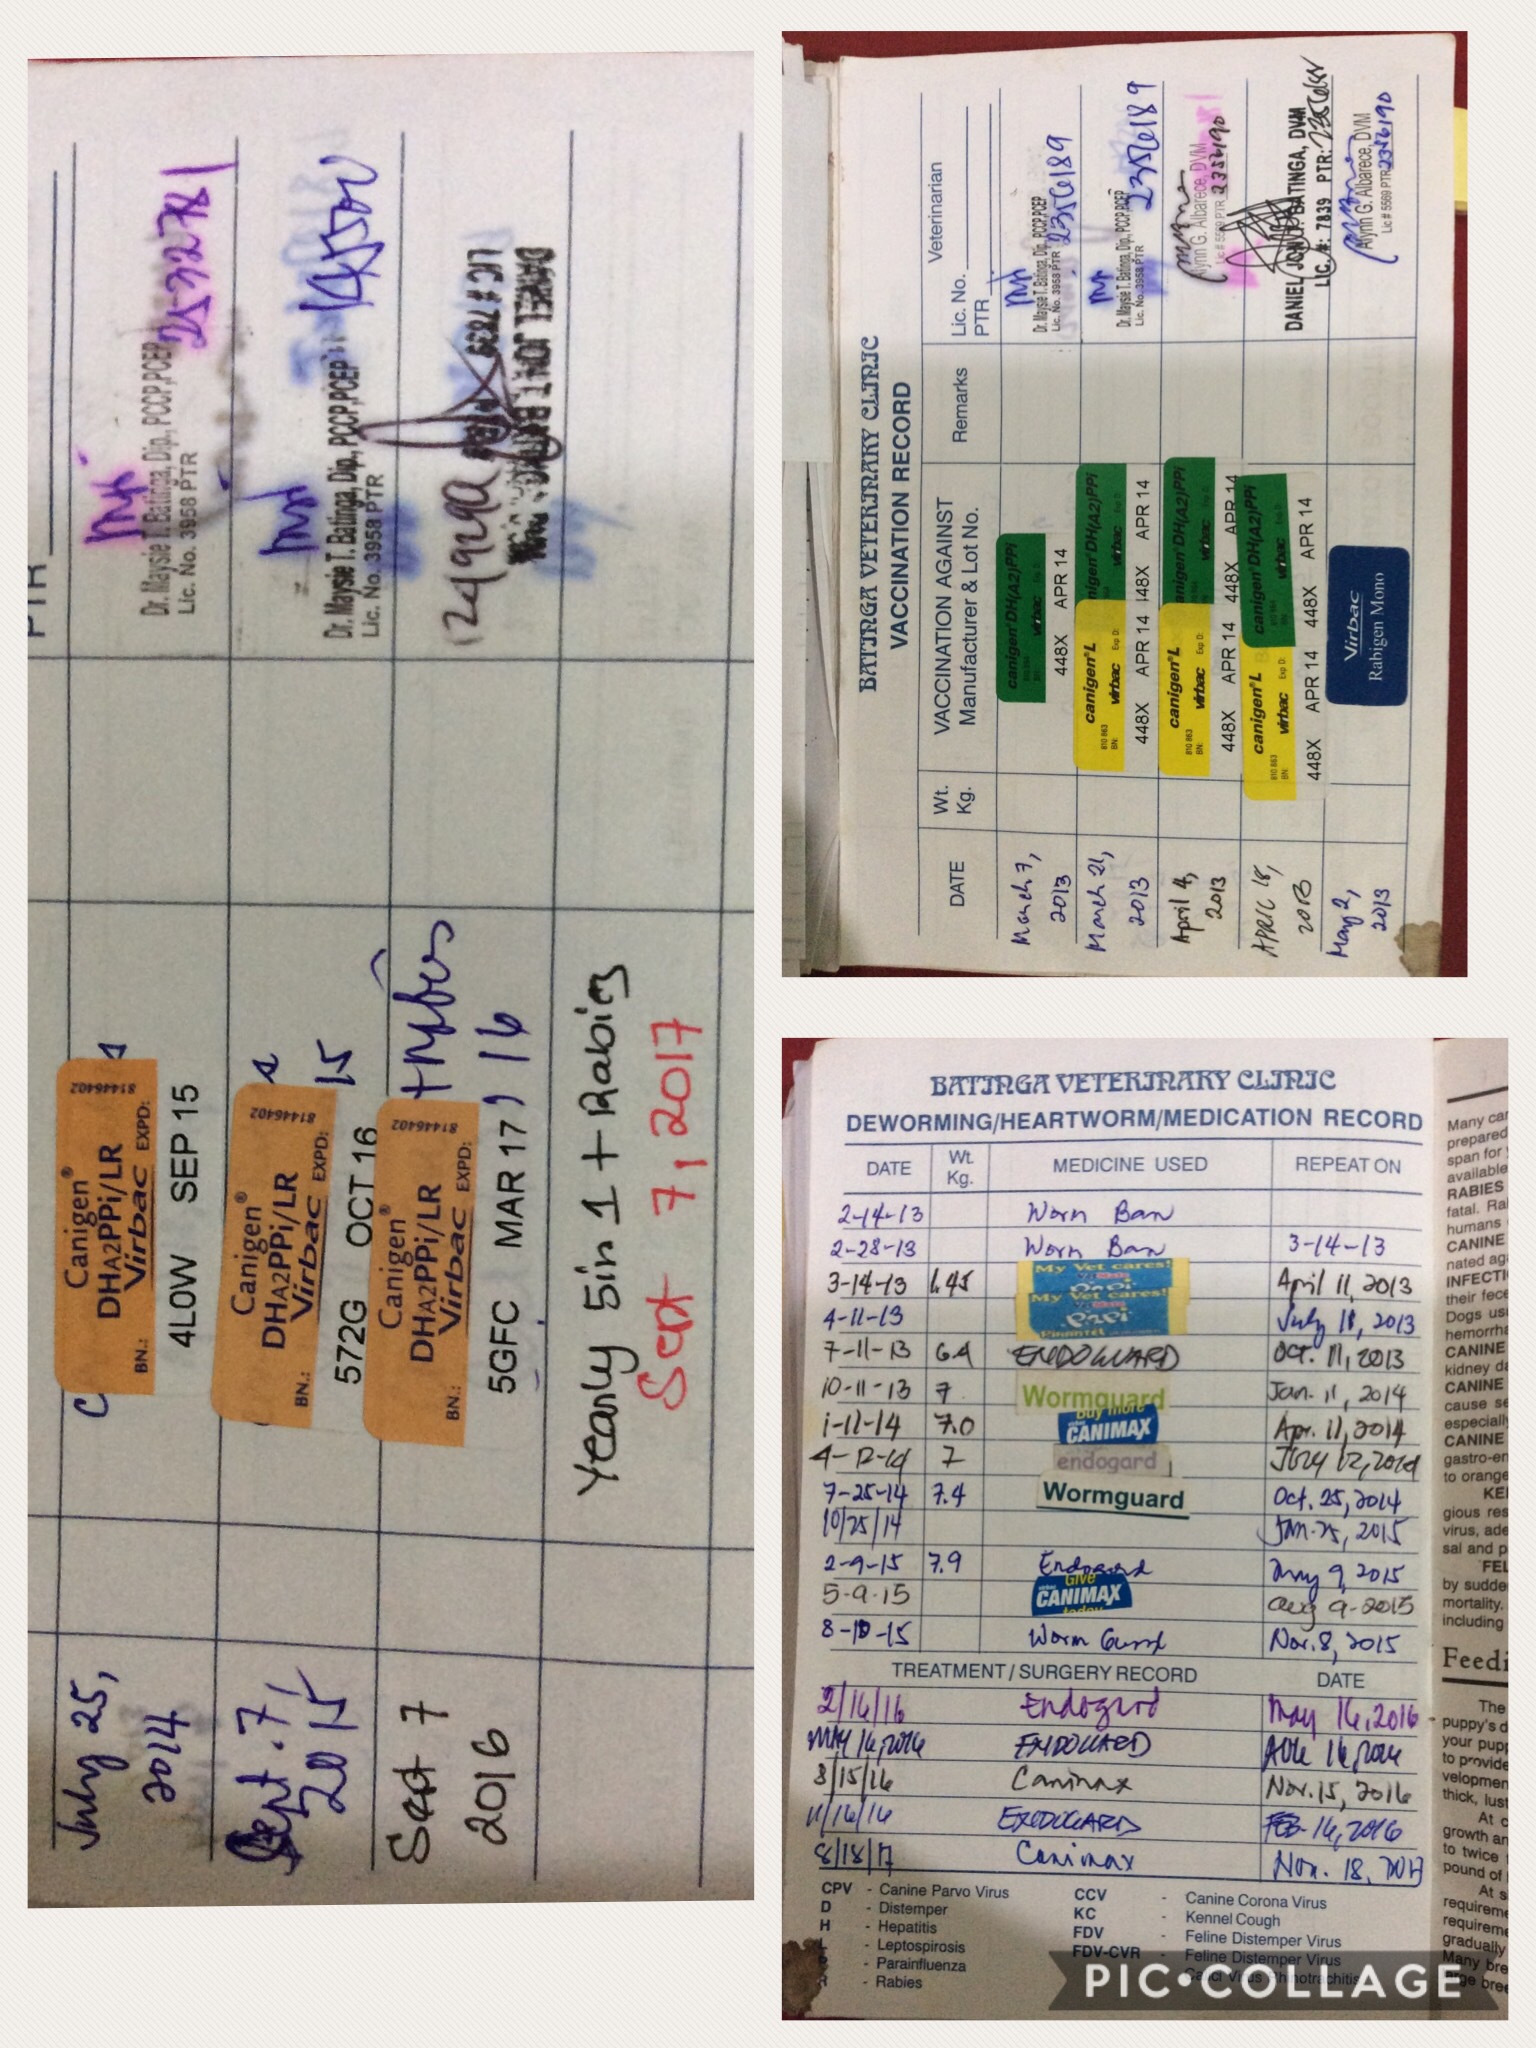 PTR
July 25,
2014
Canigen®
DHA2PPi/LR
Virbac
BN.: EXPD:
81446402
4L0W SEP 15
Dr. Maysie T. Batinga, Dip., PCCP,PCEP
Lic. No. 3958 PTR
2532781
Sept. 7/
2015
Canigen®
DHA2PPi/LR
Virbac
BN.: EXPD:
81446402
572G OCT 16
15
Dr. Maysie T. Batinga, Dip., PCCP,PCEP
Lic. No. 3958 PTR
Sept 7
2016
Canigen®
DHA2PPi/LR
Virbac
BN.: EXPD:
81446402
5GFC MAR 17
16
LIC # 7839
Yearly 5in 1 + Rabies
Sept 7, 2017
BATINGA VETERINARY CLINIC
VACCINATION RECORD
DATE
Wt.
Kg.
VACCINATION AGAINST
Manufacturer & Lot No.
Remarks
Veterinarian
Lic. No.
PTR
March 7,
2013
canigen® DH(A2)PPi
virbac
448X APR 14
Dr. Maysie T. Batinga, Dip., PCCP,PCEP
Lic. No. 3958 PTR 2356189
March 21,
2013
canigen® L canigen® DH(A2)PPi
810 863
BN: virbac Exp D: virbac
448X APR 14 448X APR 14
Dr. Maysie T. Batinga, Dip., PCCP,PCEP
Lic. No. 3958 PTR 2356189
April 4,
2013
canigen® L canigen® DH(A2)PPi
810 863
BN: virbac Exp D: virbac
448X APR 14 448X APR 14
Alynn G. Albarece, DVM
Lic # 5569 PTR 2356190
APRIL 18,
2013
canigen® L canigen® DH(A2)PPi
810 863
BN: virbac Exp D: virbac
448X APR 14 448X APR 14
DANIEL JON T. BATINGA, DVM
LIC. #: 7839 PTR:
May 2,
2013
Virbac
Rabigen Mono
Alynn G. Albarece, DVM
Lic # 5569 PTR 2356190
BATINGA VETERINARY CLINIC
DEWORMING/HEARTWORM/MEDICATION RECORD
DATE Wt. Kg. MEDICINE USED REPEAT ON
2-14-13 Worm Ban
2-28-13 Worm Ban 3-14-13
3-14-13 1.45 My Vet cares! April 11, 2013
4-11-13 My Vet cares! July 11, 2013
7-11-13 6.4 ENDOGUARD Oct. 11, 2013
10-11-13 7 Wormguard Jan. 11, 2014
1-11-14 7.0 buy more CANIMAX Apr. 11, 2014
4-12-14 7 endogard July 12, 2014
7-25-14 7.4 Wormguard Oct. 25, 2014
10/25/14 Jan. 25, 2015
2-9-15 7.9 Endogard May 9, 2015
5-9-15 Give CANIMAX today Aug 9-2015
8-10-15 Worm Guard Nov. 8, 2015
TREATMENT / SURGERY RECORD DATE
2/16/16 Endogard May 16, 2016
MAY 16, 2016 ENDOGARD
8/15/16 Canimax Nov. 15, 2016
11/16/16 ENDOGARD FEB. 16, 2016
8/18/17 Canimax Nov. 18, 2017
CPV - Canine Parvo Virus
D - Distemper
H - Hepatitis
L - Leptospirosis
- Parainfluenza
- Rabies
CCV - Canine Corona Virus
KC - Kennel Cough
FDV - Feline Distemper Virus
FDV-CVR - Feline Distemper Virus
Many car
prepared
span for
available
RABIES
fatal. Ra
humans
CANINE
nated aga
INFECTI
their fece
Dogs us
hemorrha
CANINE
kidney da
CANINE
cause se
especially
CANINE
gastro-en
to orange
KE
gious res
virus, ade
sal and p
FEL
by sudde
mortality.
including
Feedi
The
puppy's d
your pup
to provide
velopmen
thick, lust
At c
growth an
to twice
pound of
At s
requireme
requireme
gradually
Many bre
large bree
PIC•COLLAGE